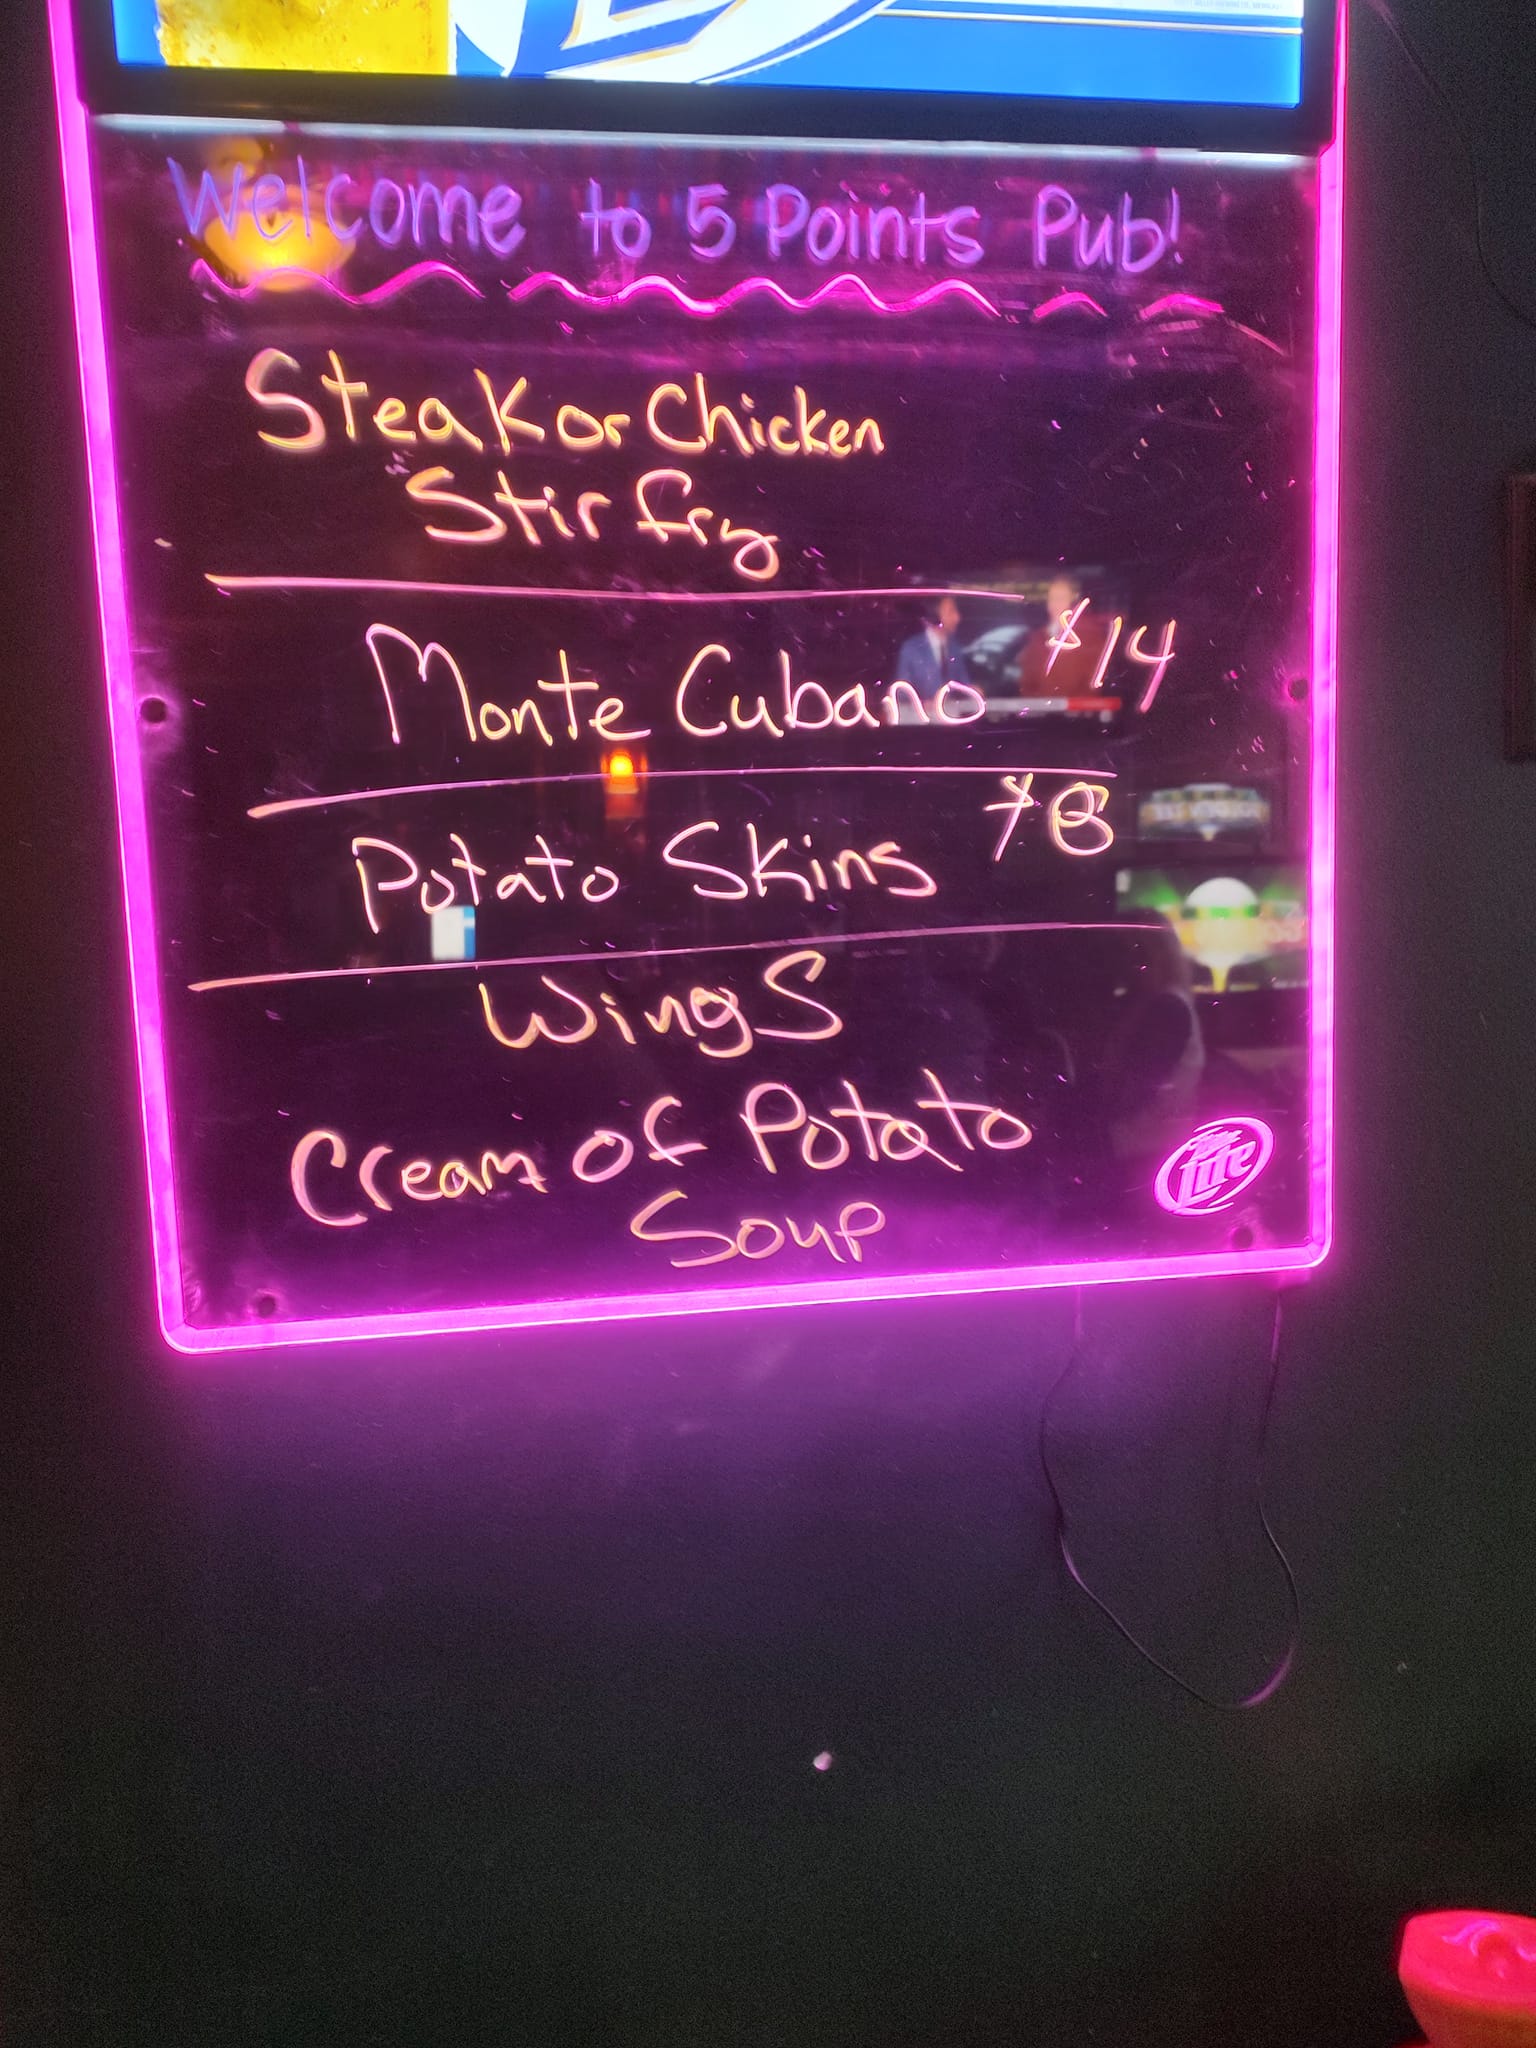 Welcome to 5 Points Pub!
Steak or Chicken
Stir fry
Monte Cubano $14
Potato Skins $8
Wings
Cream of Potato
Soup
Lite